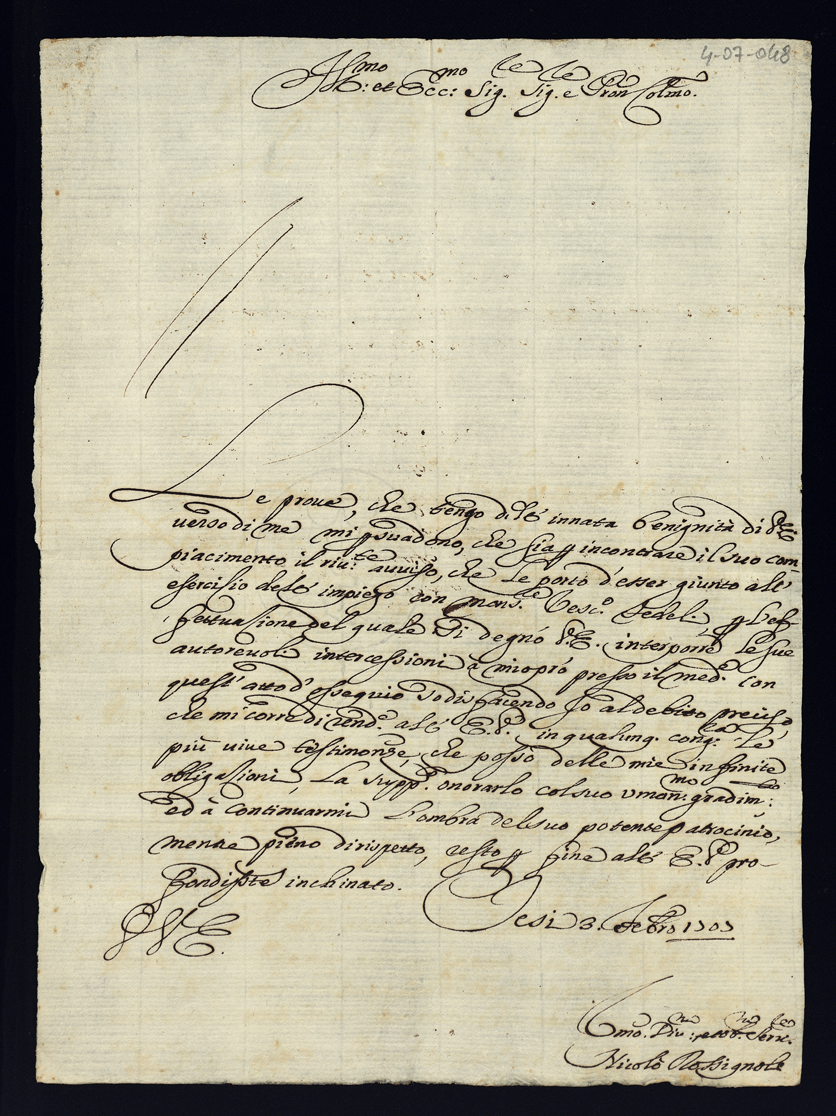 4-07-048
Ill:mo et Ecc:mo Sig.le Sig.le e Pron Colmo.
Le prove, che tengo dell' innata benignità di V.E.
verso di me mi psuadono, che sia p incontrare il suo com
piacimento il riv:te avviso, che le porto d'esser giunto all'
esercisio dell' impiego con Mons.e Vesc.o Fedel. p l'ef
fettuasione del quale si degnò V.E. interporre le sue
autorevoli intercessioni à mio prò presso il med.o con
quest' atto d'ossequio sodisfacendo Io al debito preciso,
che mi corre di rend.e all' E.V. in qualunq. cong.ra le
più vive testimonze, che posso delle mie infinite
obligasioni, La supp.o onorarlo col suo uman:mo gradim:to
ed à continuarmi l'ombra del suo potente patrocinio,
mentre pieno di rispetto, resto p fine all' E.V. pro-
fondisste inchinato.
Jesi 3. Febro 1707
D V E.
Umo. Div:mo et obb.mo Serv.le
Nicolò Rossignoli